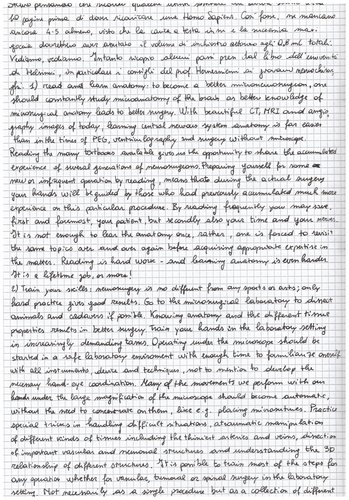 60 pagine prima di dover ricaricare una Homo Sapiens. Con
ancora 4-5 almeno, visto che la carta a testa in e la
gocce dovrebbero aver aspirato il volume di inchiostro attorno agli 0,8 ml totali.
Vediamo, vediamo. Intanto scopio alcuni pezzi presi dal libro dell'
di Helsinki, in particolare i consigli del prof Hernesniemi ai giovani neurochirur
ghi. 1) read and learn anatomy: to become a better microneurosurgeon, one
should constantly study microanatomy of the brain as better knowledge of
microsurgical anatomy leads to better surgery. With beautiful CT, MRI and angio
graphy images of today, learning central nervous system anatomy is far easier
than in the times of PEG, ventriculography and surgery without microscope.
Reading the many textbooks available gives us the opportunity to share the accumulated
experience of several generations of neurosurgeons. Preparing yourself for some
new or infrequent operation by reading, means that during the actual surgery
your hands will be guided by those who had previously accumulated much more
experience on this particular procedure. By reading frequently you may save,
first and foremost, your patient, but secondly also your time and your nerves.
It is not enough to learn the anatomy once, rather, one is forced to revisit
the same topics over and over again before acquiring appropriate expertise in
the matter. Reading is hard work - and learning anatomy is even harder
It is a lifetime job, or more!
2) Train your skills: neurosurgery is no different from any sports or arts; only
hard practice gives good results. Go to the microsurgical laboratory to dissect
animals and cadavers if possible. Knowing anatomy and the different tissue
properties results in better surgery. Train your hands in the laboratory setting
in increasingly demanding tasks. Operating under the microscope should be
started in a safe laboratory environment with enough time to familiarize oneself
with all instruments, device and techniques, not to mention to develop the
necessary hand-eye coordination. Many of the movements we perform with our
hands under the large magnification of the microscope should become automatic,
without the need to concentrate on them, like e.g. placing microsutures. Practice
special tricks in handling difficult situations, atraumatic manipulation
of different kinds of tissues including the thinnest arteries and veins, dissection
of important vascular and neuronal structures and understanding the 3D
relationship of different structures. It is possible to train most of the steps for
any operation whether for vascular, tumoral or spinal surgery in the laboratory
setting. Not necessarily as a single procedure but as a collection of different